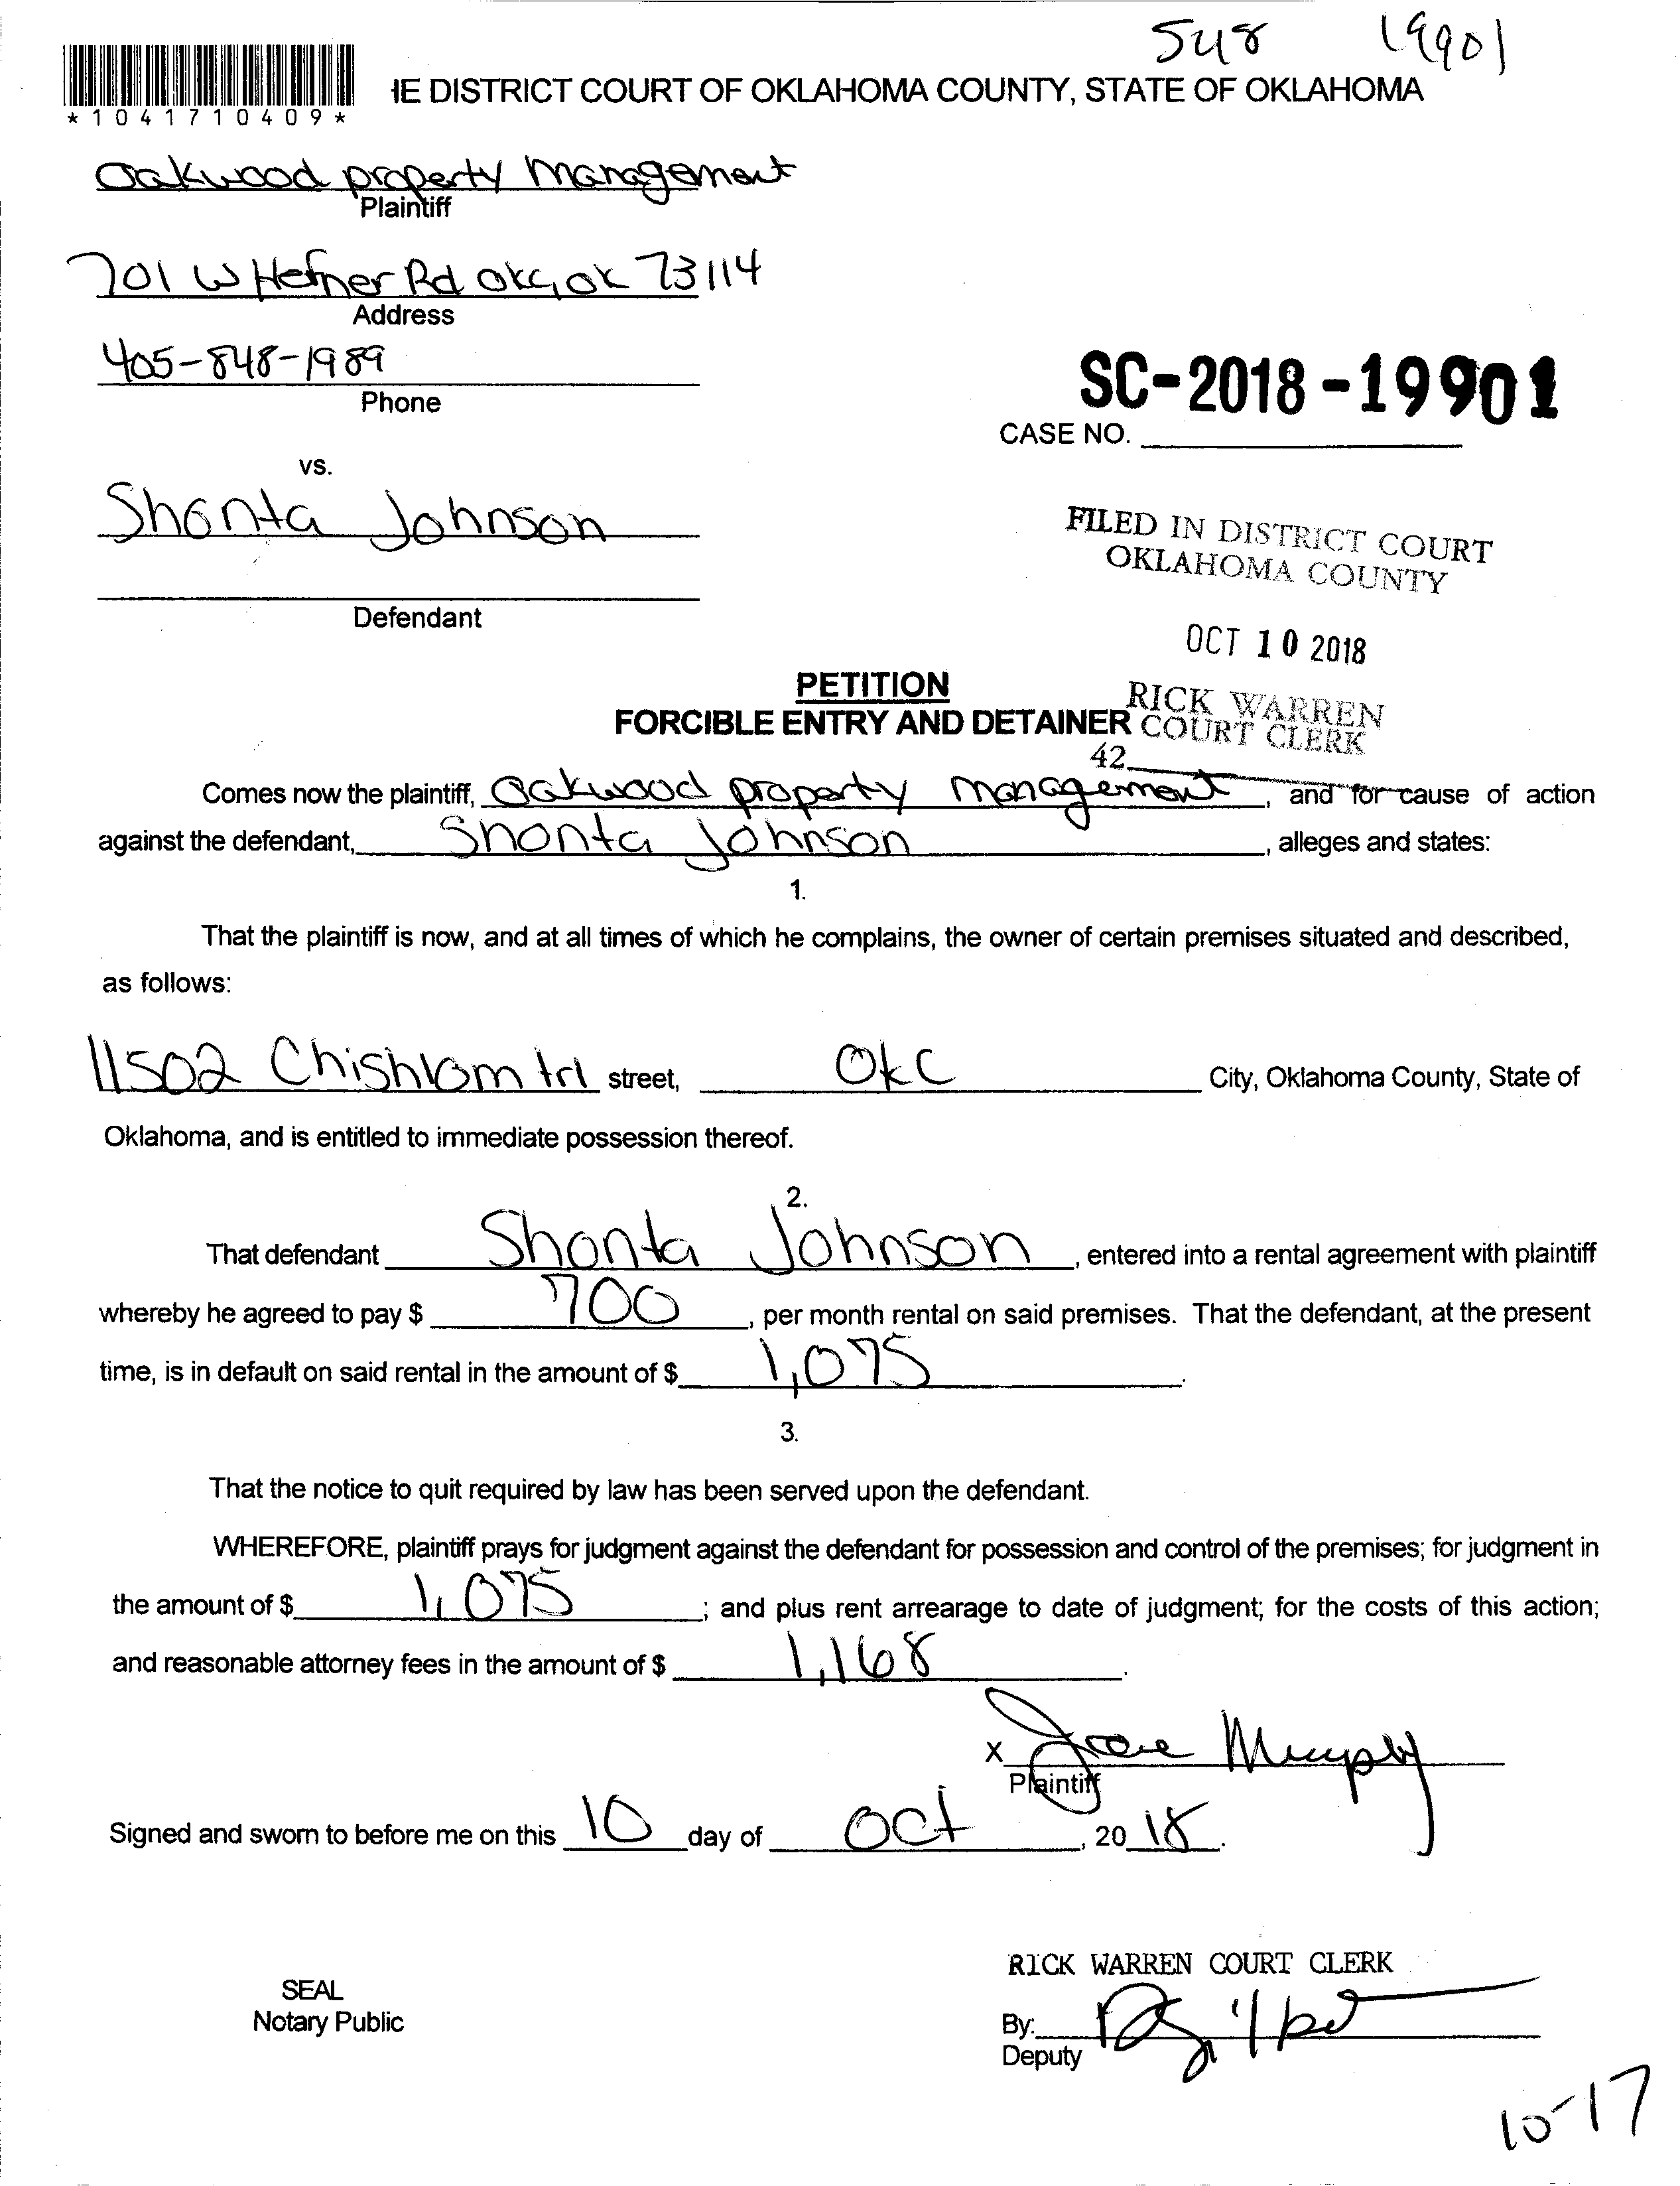 548 19901
*1041710409*
IE DISTRICT COURT OF OKLAHOMA COUNTY, STATE OF OKLAHOMA
Oakwood property Management
Plaintiff
701 W Hefner Rd OKC, OK 73114
Address
405-848-1989
Phone
SC-2018-19901
CASE NO.
vs.
Shonta Johnson
Defendant
FILED IN DISTRICT COURT
OKLAHOMA COUNTY
OCT 10 2018
RICK WARREN
COURT CLERK
42
PETITION
FORCIBLE ENTRY AND DETAINER
Comes now the plaintiff, Oakwood property management, and for cause of action
against the defendant, Shonta Johnson, alleges and states:
1.
That the plaintiff is now, and at all times of which he complains, the owner of certain premises situated and described,
as follows:
11502 Chishlom trl street, OKC City, Oklahoma County, State of
Oklahoma, and is entitled to immediate possession thereof.
2.
That defendant Shonta Johnson, entered into a rental agreement with plaintiff
whereby he agreed to pay $ 700, per month rental on said premises. That the defendant, at the present
time, is in default on said rental in the amount of $ 1,075.
3.
That the notice to quit required by law has been served upon the defendant.
WHEREFORE, plaintiff prays for judgment against the defendant for possession and control of the premises; for judgment in
the amount of $ 1,075; and plus rent arrearage to date of judgment; for the costs of this action;
and reasonable attorney fees in the amount of $ 1,168.
X Murphy
Plaintiff
Signed and sworn to before me on this 10 day of Oct, 2018.
RICK WARREN COURT CLERK
SEAL
Notary Public
By:
Deputy
10-17